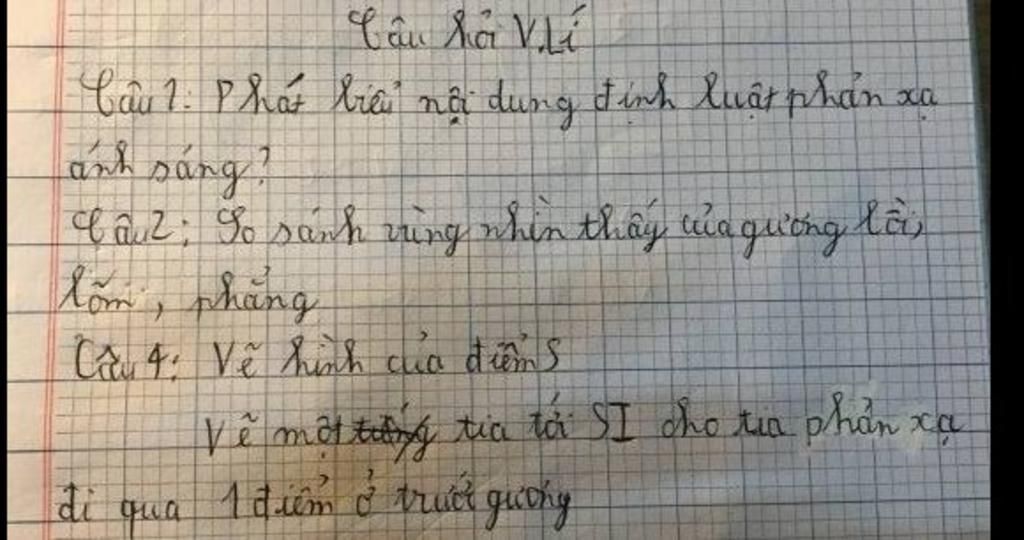 Câu hỏi V.Lí
Câu 1: Phát biểu nội dung định luật phản xạ
ánh sáng?
Câu 2: So sánh vùng nhìn thấy của gương lồi,
lõm, phẳng
Câu 4: Vẽ hình của điểm S
Vẽ một tia tới SI cho tia phản xạ
đi qua 1 điểm ở trước gương